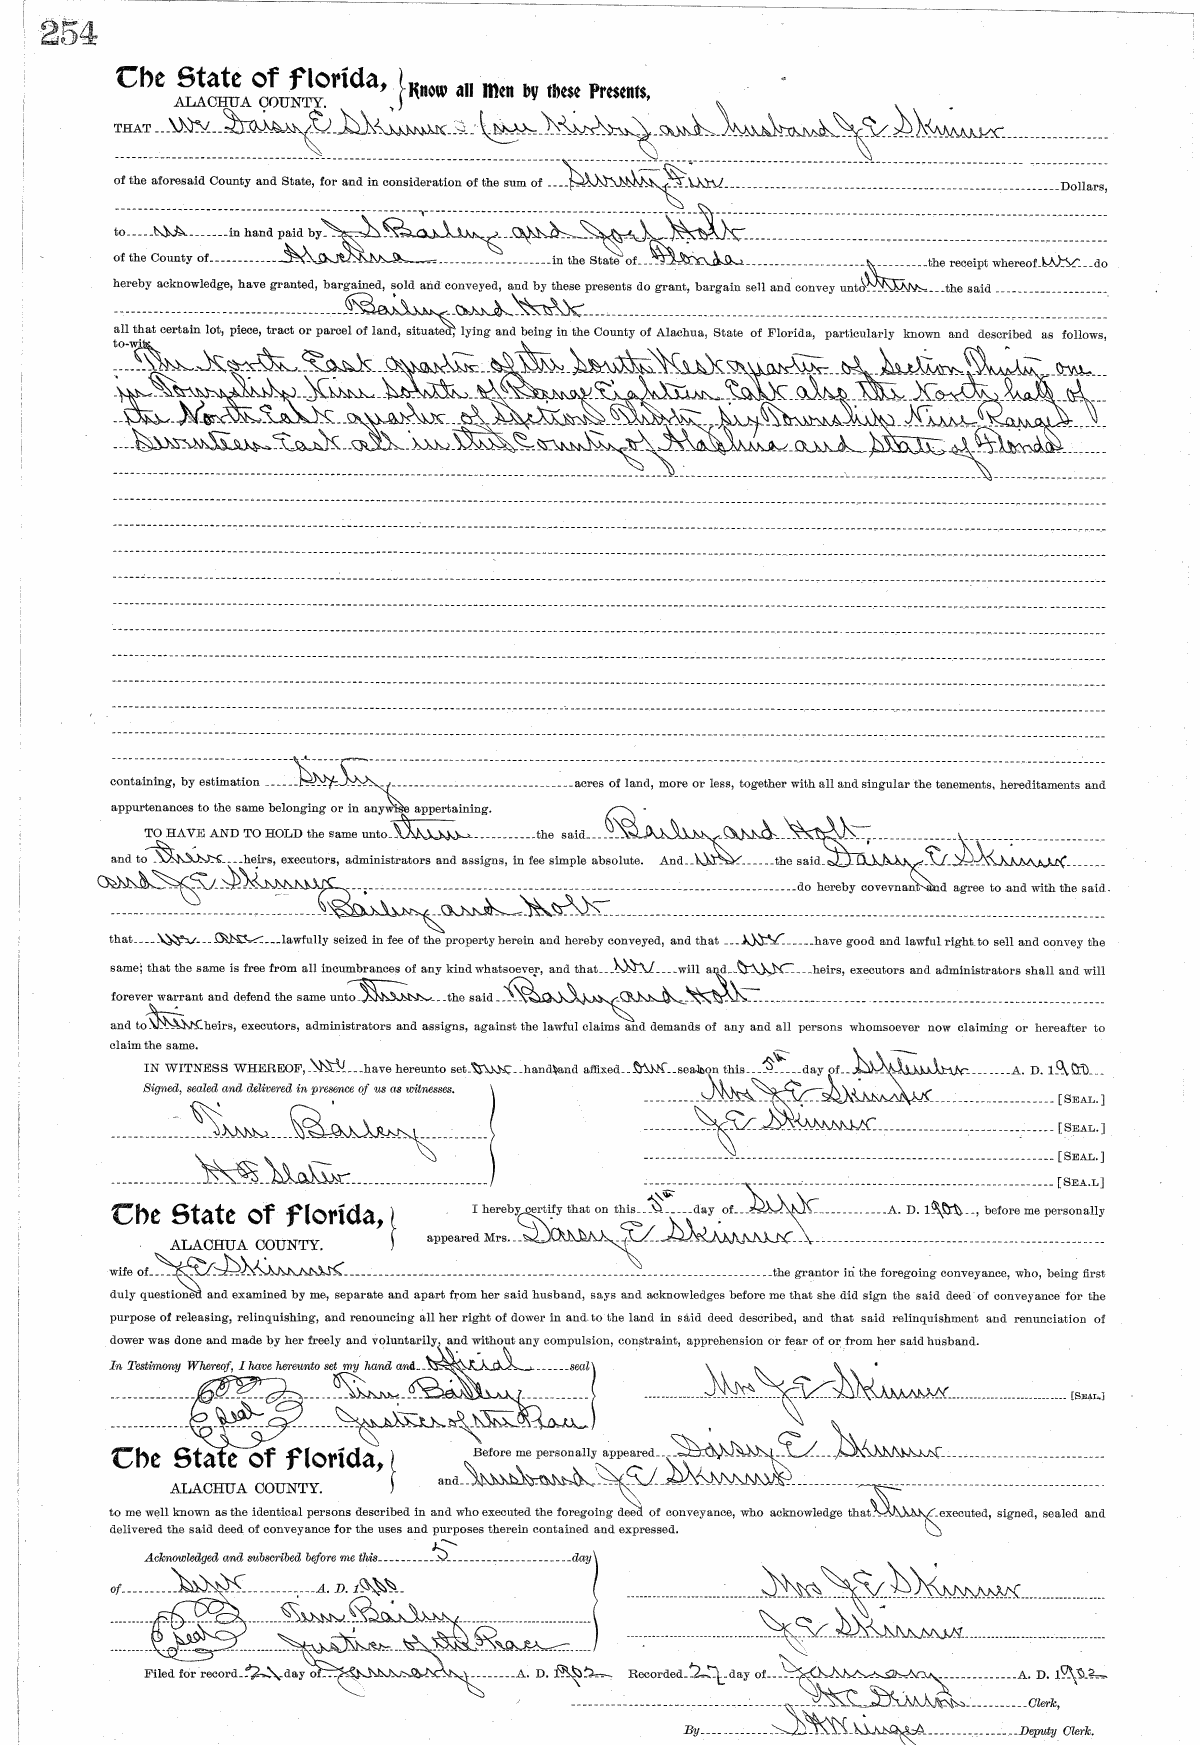 254
The State of Florida, Know all Men by these Presents,
ALACHUA COUNTY.
THAT We Daisy E Skinner (nee Kirby) and husband J E Skinner
of the aforesaid County and State, for and in consideration of the sum of Seventy Five Dollars,
to us in hand paid by J S Bailey and Joel Holt
of the County of Alachua in the State of Florida the receipt whereof we do
hereby acknowledge, have granted, bargained, sold and conveyed, and by these presents do grant, bargain sell and convey unto them the said
Bailey and Holt
all that certain lot, piece, tract or parcel of land, situated, lying and being in the County of Alachua, State of Florida, particularly known and described as follows,
to-wit:
The North East quarter of the South West quarter of Section Thirty one
in Township Nine South of Range Eighteen East also the North half of
the North East quarter of Section Thirty six Township Nine Range
Seventeen East all in this County of Alachua and State of Florida
containing, by estimation Sixty acres of land, more or less, together with all and singular the tenements, hereditaments and
appurtenances to the same belonging or in anywise appertaining.
TO HAVE AND TO HOLD the same unto them the said Bailey and Holt
and to theirs heirs, executors, administrators and assigns, in fee simple absolute. And we the said Daisy E Skinner
and J E Skinner do hereby covevnant and agree to and with the said
Bailey and Holt
that we are lawfully seized in fee of the property herein and hereby conveyed, and that we have good and lawful right to sell and convey the
same; that the same is free from all incumbrances of any kind whatsoever, and that we will and our heirs, executors and administrators shall and will
forever warrant and defend the same unto them the said Bailey and Holt
and to their heirs, executors, administrators and assigns, against the lawful claims and demands of any and all persons whomsoever now claiming or hereafter to
claim the same.
IN WITNESS WHEREOF, we have hereunto set our hands and affixed our seals on this 5th day of September A. D. 1900
Signed, sealed and delivered in presence of us as witnesses. Mrs J E Skinner [SEAL.]
Tim Bailey J E Skinner [SEAL.]
[SEAL.]
H F Slater [SEA.L]
The State of Florida, I hereby certify that on this 5th day of Sept A. D. 1900, before me personally
ALACHUA COUNTY. appeared Mrs. Daisy E Skinner
wife of J E Skinner the grantor in the foregoing conveyance, who, being first
duly questioned and examined by me, separate and apart from her said husband, says and acknowledges before me that she did sign the said deed of conveyance for the
purpose of releasing, relinquishing, and renouncing all her right of dower in and to the land in said deed described, and that said relinquishment and renunciation of
dower was done and made by her freely and voluntarily, and without any compulsion, constraint, apprehension or fear of or from her said husband.
In Testimony Whereof, I have hereunto set my hand and official seal
Tim Bailey Mrs J E Skinner [SEAL.]
Seal Justice of the Peace
The State of Florida, Before me personally appeared Daisy E Skinner
ALACHUA COUNTY. and husband J E Skinner
to me well known as the identical persons described in and who executed the foregoing deed of conveyance, who acknowledge that they executed, signed, sealed and
delivered the said deed of conveyance for the uses and purposes therein contained and expressed.
Acknowledged and subscribed before me this 5 day
of Sept A. D. 1900 Mrs J E Skinner
Tim Bailey
Seal Justice of the Peace J E Skinner
Filed for record 21 day of January A. D. 1902 Recorded 27 day of January A. D. 1902
H C Denton Clerk,
By S H Wienges Deputy Clerk.